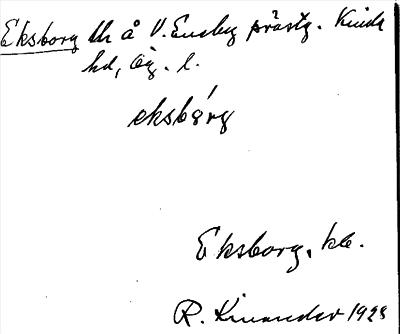 Eksborg lh å V. Eneby prästg. Kinda
hd, Ög. l.
eksbårg
Eksborg, kb.
R. Kinander 1928